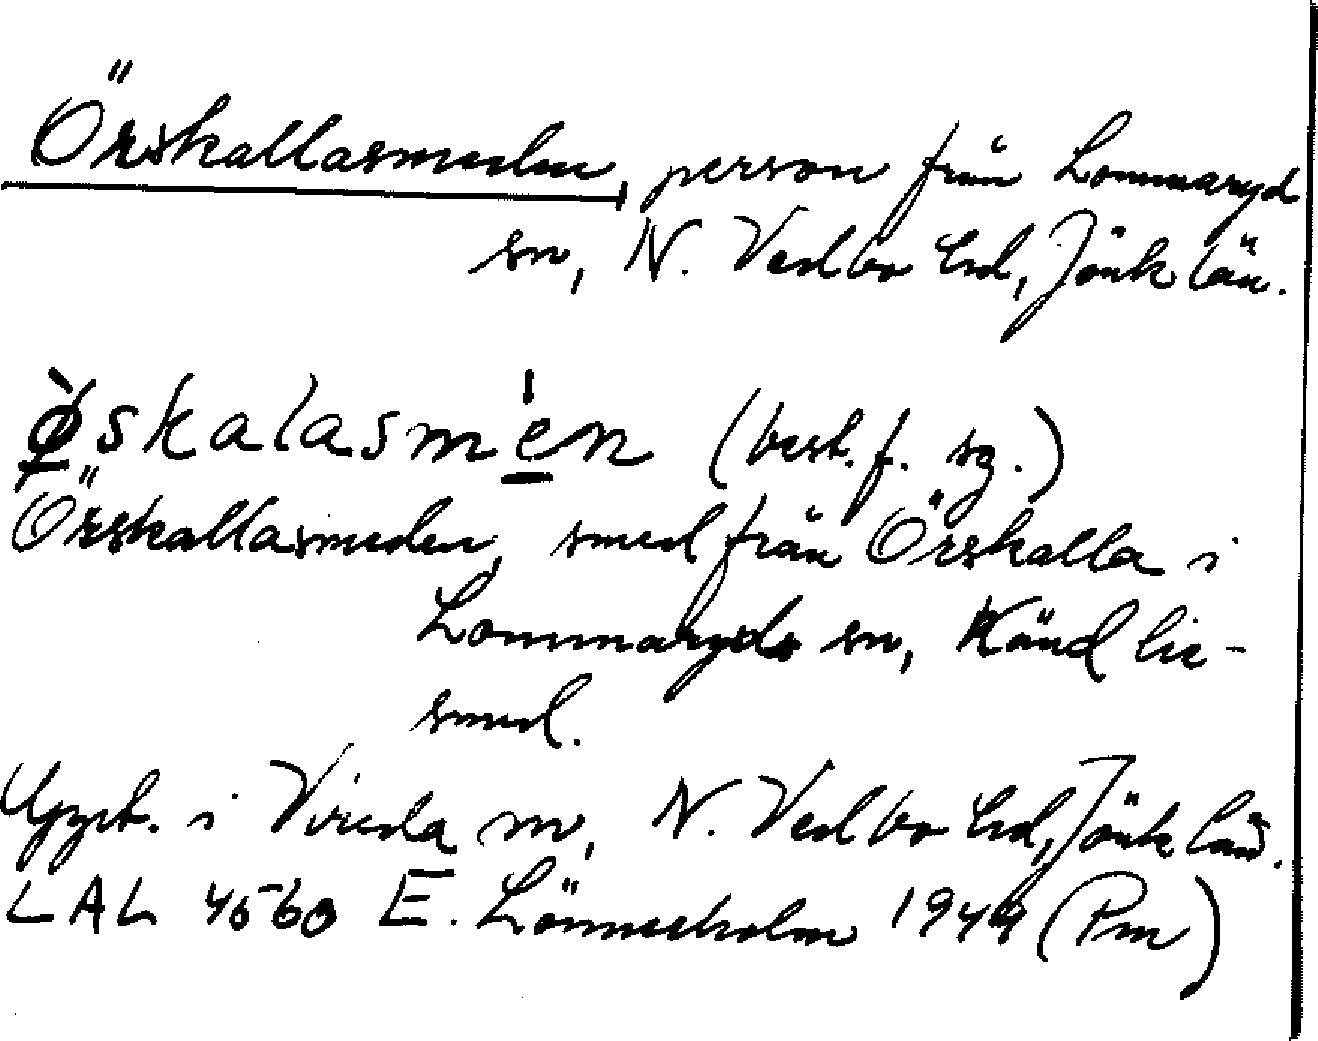 Örskallasmeden, person från Lommaryd
sn, N. Vedbo hd, Jönk län.
ø̀skalasmén (best. f. sg.)
Örskallasmeden, smed från Örskalla i
Lommaryds sn, Känd lie-
smed.
Uppt. i Vireda sn, N. Vedbo hd, Jönk län.
LAL 4560 E. Lönnerholm 1949 (Pm)